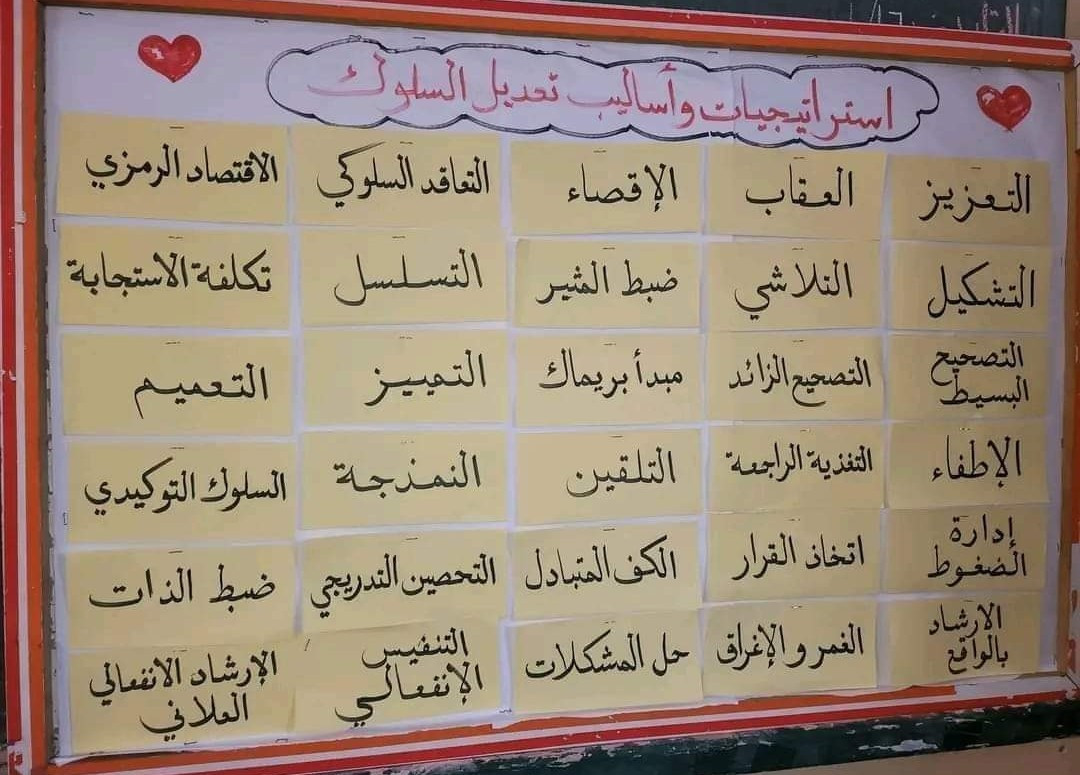 استراتيجيات وأساليب تعديل السلوك
التعزيز
العقاب
الإقصاء
التعاقد السلوكي
الاقتصاد الرمزي
التشكيل
التلاشي
ضبط المثير
التسلسل
تكلفة الاستجابة
التصحيح
البسيط
التصحيح الزائد
مبدأ بريماك
التمييز
التعميم
الإطفاء
التغذية الراجعة
التلقين
النمذجة
السلوك التوكيدي
إدارة
الضغوط
اتخاذ القرار
الكف المتبادل
التحصين التدريجي
ضبط الذات
الارشاد
بالواقع
الغمر و الإغراق
حل المشكلات
التنفيس
الإنفعالي
الإرشاد الانفعالي
العلاني